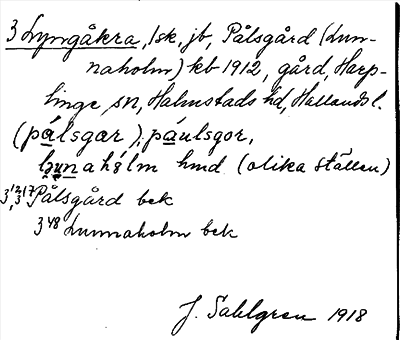 3 Lyngåkra, /sk, jb, Pålsgård (Lun-
naholm) kb 1912, gård, Harp-
linge sn, Halmstads hd, Hallands l.
(pálsgær); páulsgor,
hmd (olika ställen)
Pålsgård bek
3 48 Lunnaholm bek
J. Sahlgren 1918